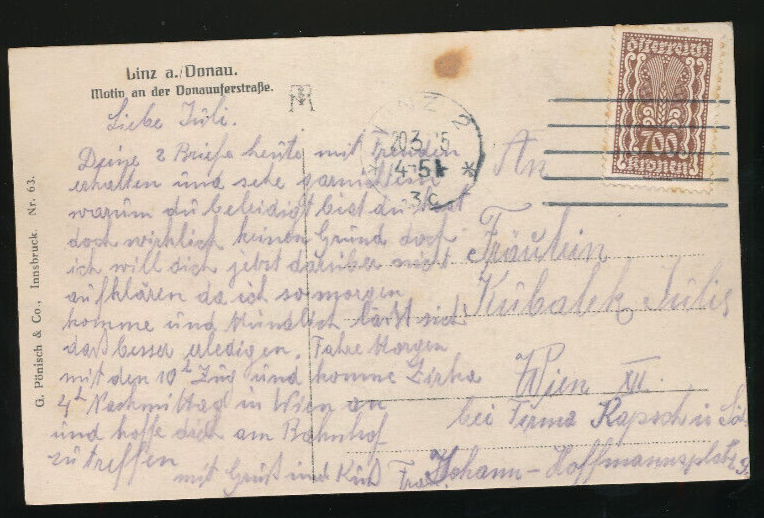 Linz a./Donau.
Motiv an der Donauuferstraße.
Liebe Juli.
Deine 2 Briefe heute mit Freuden
erhalten und sehe
warum du beleidigt bist du hast
doch wirklich keinen Grund doch
ich will dich jetzt darüber nicht
aufklären da ich so morgen
komme und Mündlich läßt sich
daß besser erledigen. Fahre Morgen
mit den 10h Zug und komme Zirka
4h Nachmittag in Wien an
und hoffe dich am Bahnhof
zu treffen
mit Gruß und Kuß
G. Pönisch & Co., Innsbruck. Nr. 63.
LINZ 2
20.3.
Österreich
700
Kronen
An
Fräulein
Kubalek Julie
Wien XII.
bei Firma Kapsch u. Sö.
Johann-Hoffmannsplatz 9.